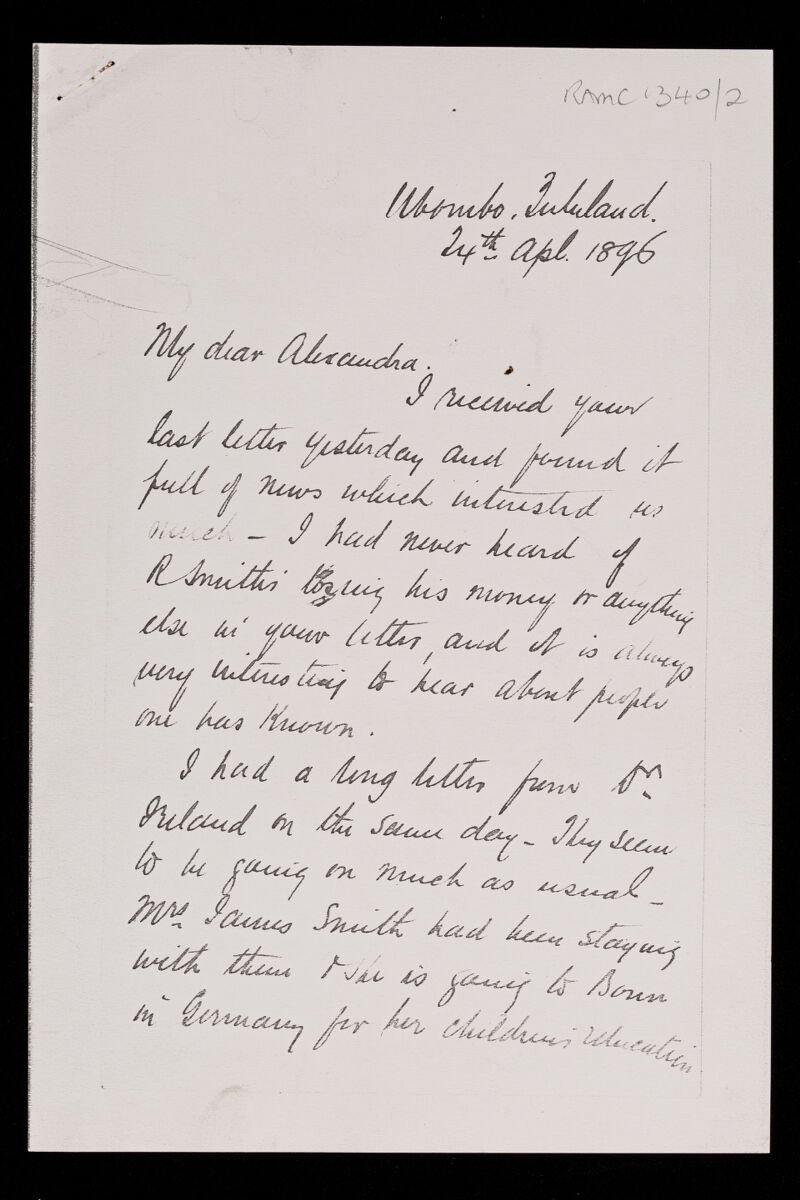 RAMC 1340/2
Ubombo. Zululand.
24th Apl. 1896
My dear Alexandra.
I received your
last letter yesterday and found it
full of news which interested us
much – I had never heard of
R Smith's losing his money or anything
else in your letter, and it is always
very interesting to hear about people
one has known.
I had a long letter from Dr
Ireland on the same day – They seem
to be going on much as usual –
Mrs James Smith had been staying
with them & she is going to Bonn
in Germany for her children's education.